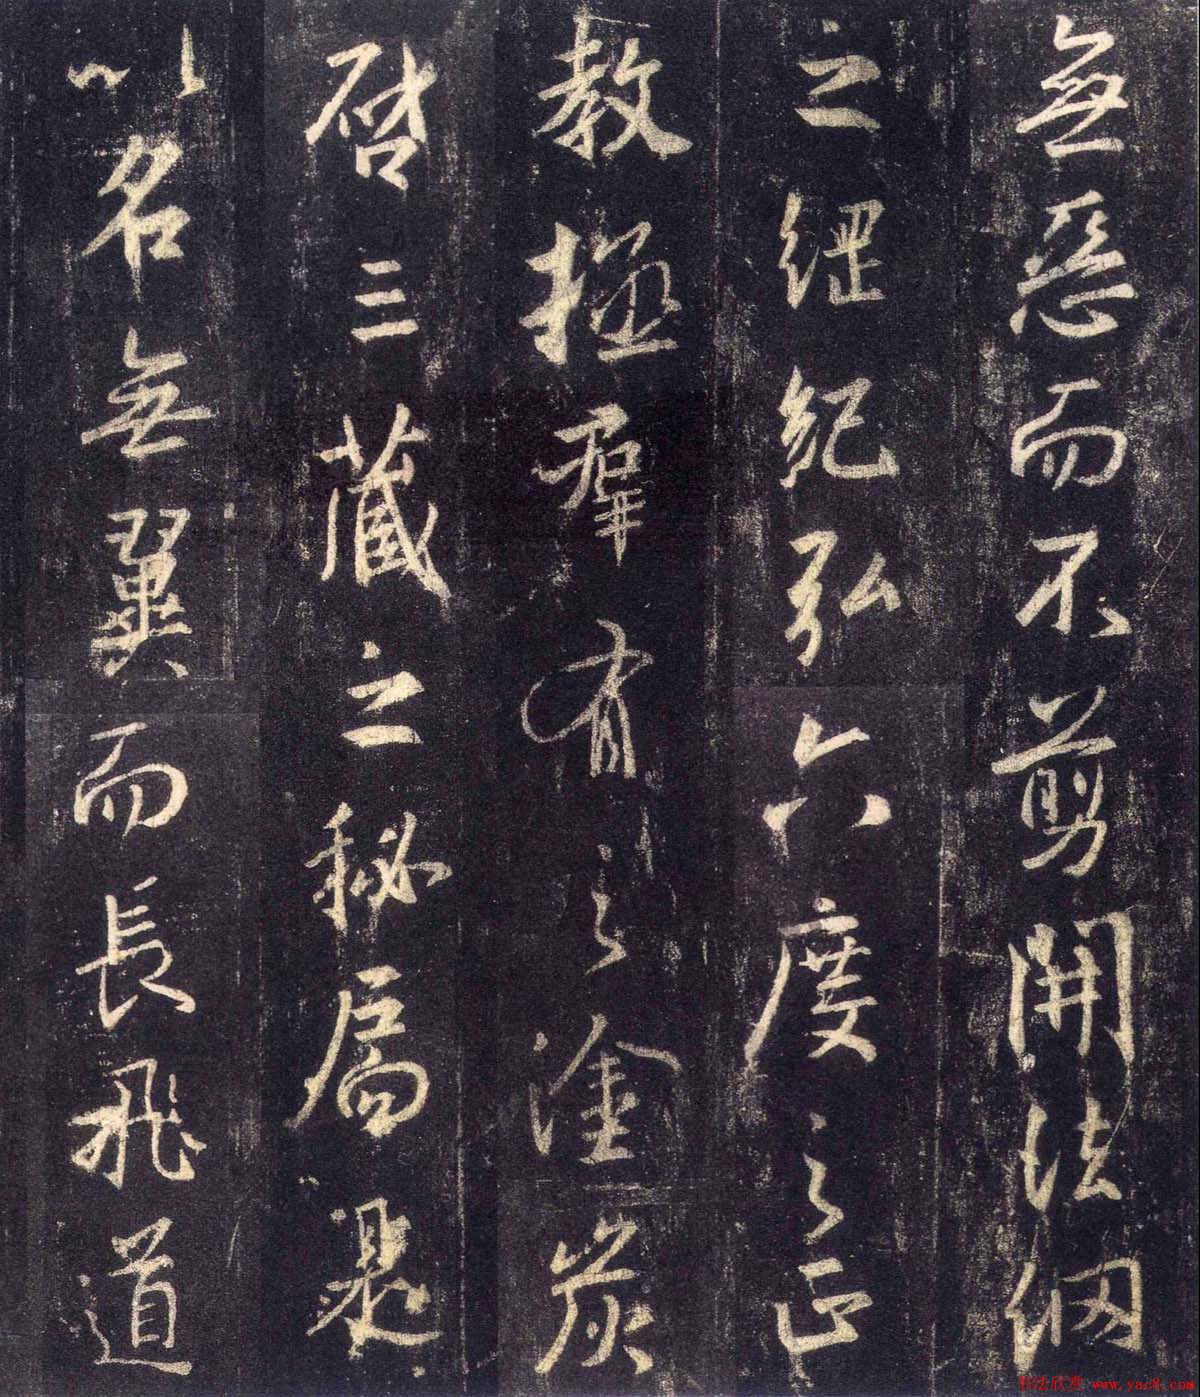 無惡而不剪開法網
之綱紀弘六度之正
教拯羣有之塗炭
啓三藏之秘扃是
以名無翼而長飛道
书法欣赏 www.yac8.com